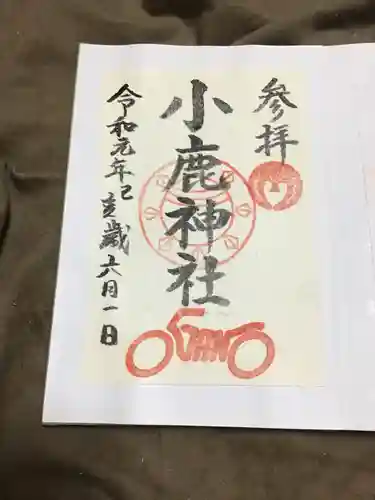 参拝
小鹿神社
令和元年己亥歳六月一日
OGANO